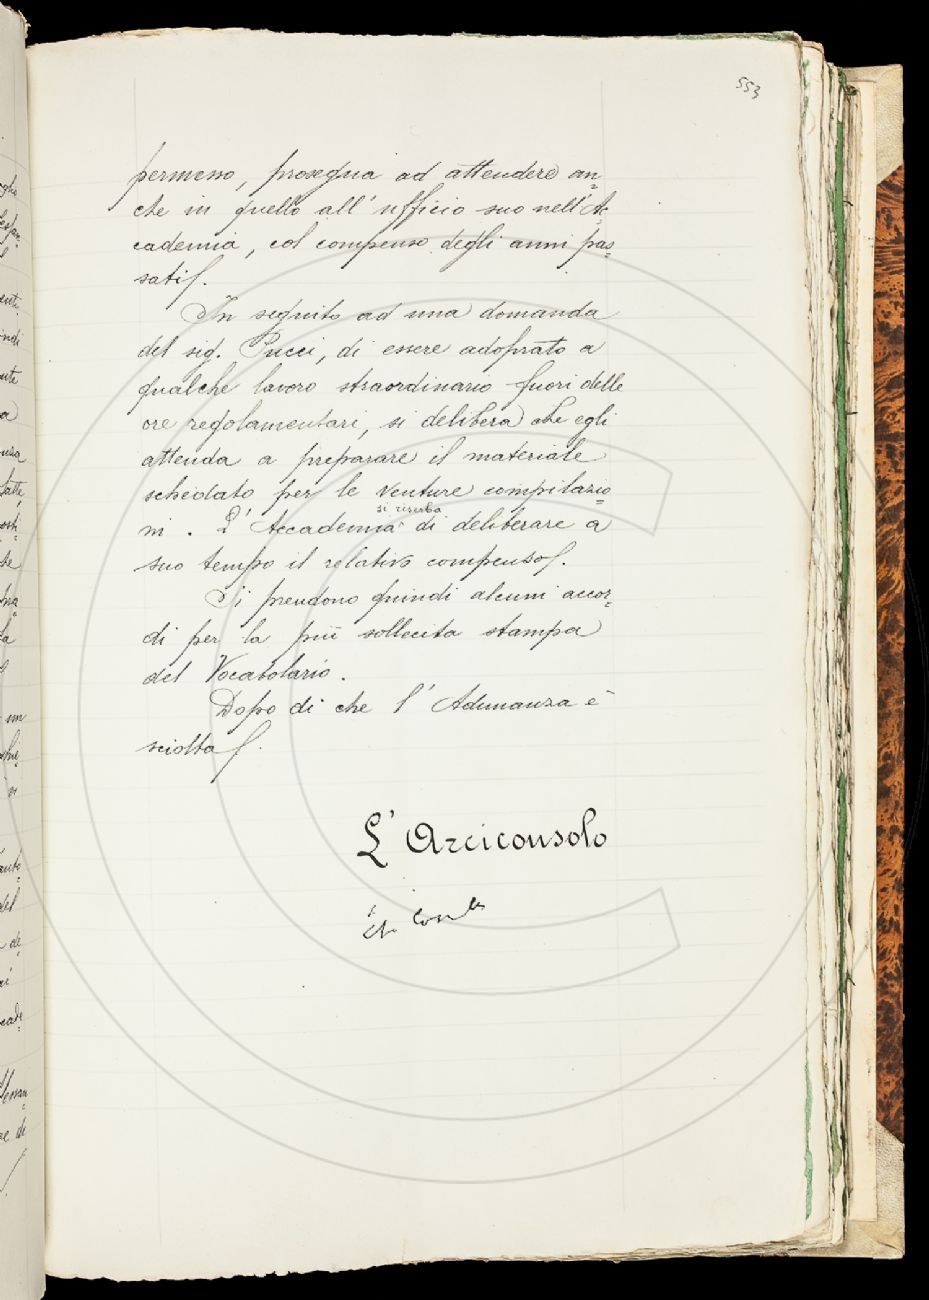 553
permesso, prosegua ad attendere an=
che in quello all'ufficio suo nell'Ac=
cademia, col compenso degli anni pas=
sati.
In seguito ad una domanda
del sig. Pucci, di essere adoprato a
qualche lavoro straordinario fuori delle
ore regolamentari, si delibera che egli
attenda a preparare il materiale
schedato per le venture compilazio
ni. L'Accademia si riserba di deliberare a
suo tempo il relativo compenso.
Si prendono quindi alcuni accor=
di per la più sollecita stampa
del Vocabolario.
Dopo di che l'Adunanza è
sciolta.
L'Arciconsolo